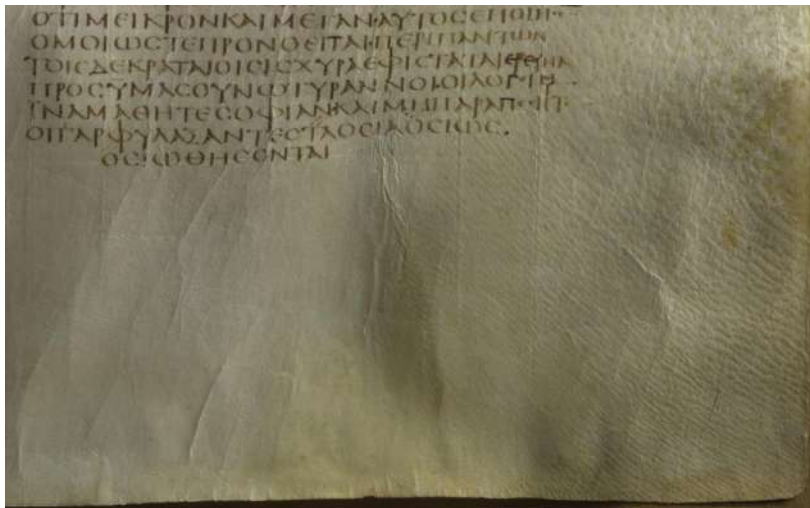 ΟΤΙΜΕΙΚΡΟΝΚΑΙΜΕΓΑΝΑΥΤΟϹΕΠΟΙΗ
ΟΜΟΙΩϹΤΕΠΡΟΝΟΕΙΤΑΙΠΕΡΙΠΑΝΤΩΝ
ΤΟΙϹΔΕΚΡΑΤΑΙΟΙϹΙϹΧΥΡΑΕΦΙϹΤΑΤΑΙΕΡΕΥΝΑ
ΠΡΟϹΥΜΑϹΟΥΝΩΤΥΡΑΝΝΟΙΟΙΛΟΓΟΙΜ
ΙΝΑΜΑΘΗΤΕϹΟΦΙΑΝΚΑΙΜΗΠΑΡΑΠΕϹΗΤ
ΟΙΓΑΡΦΥΛΑΞΑΝΤΕϹΤΑΟϹΙΑΟϹΙΩϹ.
ΟϹΙΩΘΗϹΟΝΤΑΙ